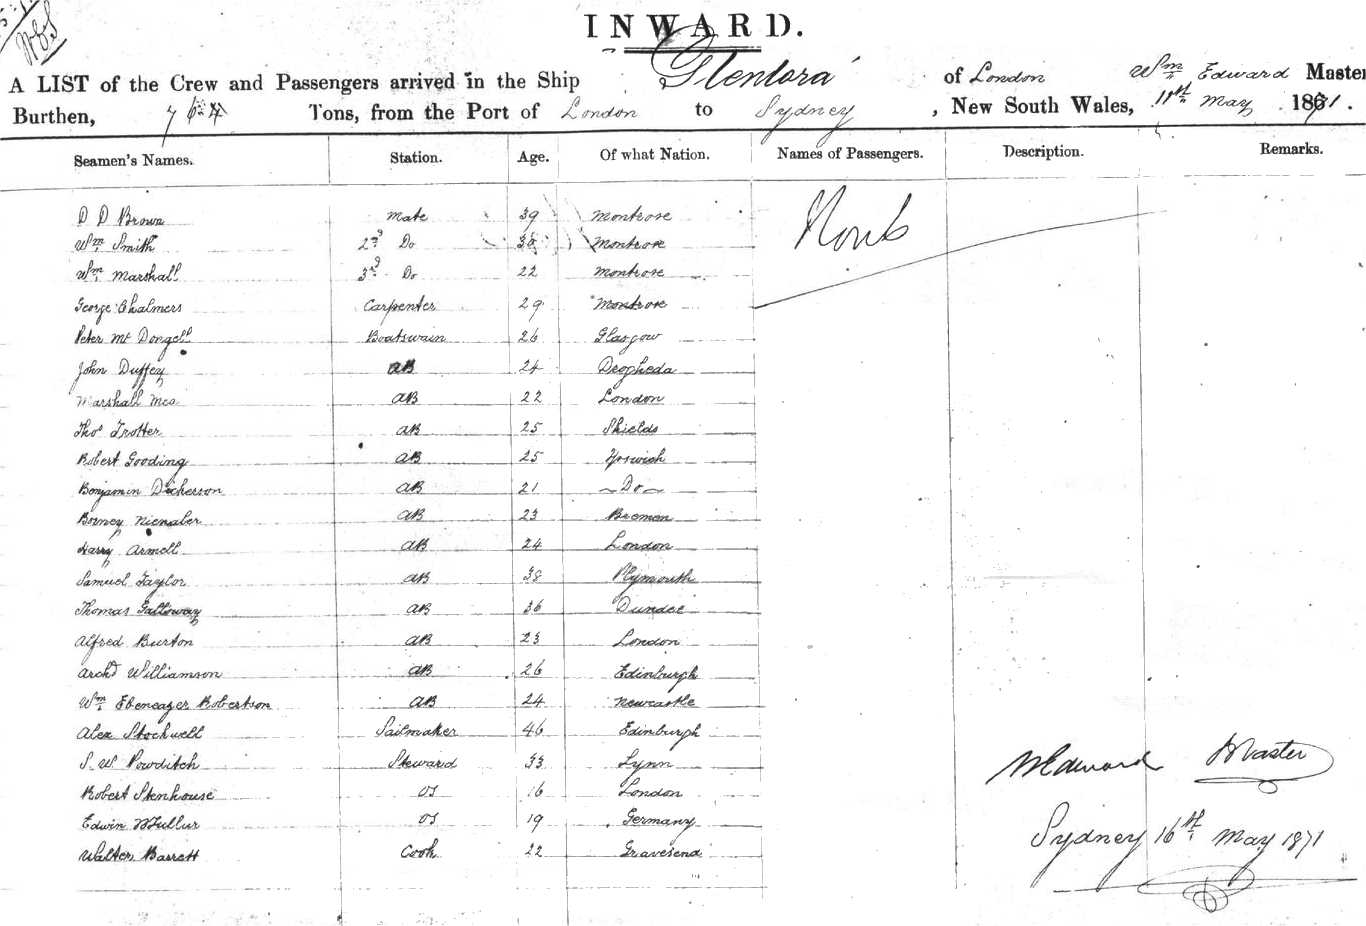 INWARD.
A LIST of the Crew and Passengers arrived in the Ship Glentora of London Wm Edward Master
Burthen, Tons, from the Port of London to Sydney, New South Wales, 11th May 1871.
Seamen's Names. Station. Age. Of what Nation. Names of Passengers. Description. Remarks.
D D Brown Mate 39 Montrose None
Wm Smith 2nd Do Montrose
Wm Marshall 3rd Do 22 Montrose
George Chalmers Carpenter 29 Montrose
Peter Mc Dongell Boatswain 26 Glasgow
John Duffey AB 24 Drogheda
Marshall AB 22 London
Thos Trotter AB 25 Shields
Robert Gooding AB 25 Ipswich
Benjamin Dickerson AB 21 Do
Nienaber AB 23 Bremen
Harry Armell AB 24 London
Samuel Taylor AB 38 Plymouth
Thomas Galloway AB 36 Dundee
Alfred Burton AB 23 London
Archd Williamson AB 26 Edinburgh
Wm Ebeneazer Robertson AB 24 Newcastle
Alex Stockwell Sailmaker 46 Edinburgh
S. W. Powditch Steward 33 Lynn
Robert Stenhouse OS 16 London
Edwin OS 19 Germany
Walter Barrett Cook 22 Gravesend
W Edward Master
Sydney 16th May 1871